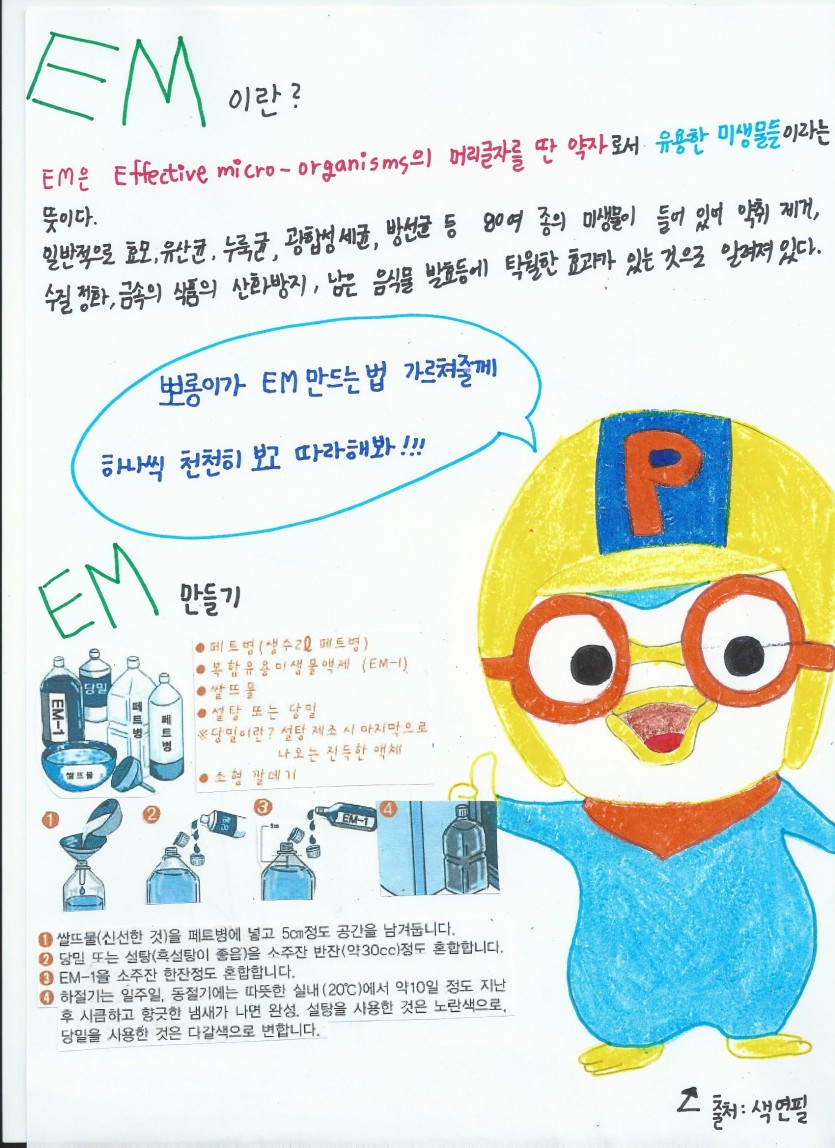 EM 이란?
EM은 Effective micro-organisms의 머리글자를 딴 약자로서 유용한 미생물들이라는
뜻이다.
일반적으로 효모, 유산균, 누룩균, 광합성세균, 방선균 등 80여 종의 미생물이 들어 있어 악취 제거,
수질 정화, 금속의 식품의 산화방지, 남은 음식물 발효등에 탁월한 효과가 있는 것으로 알려져 있다.
뽀롱이가 EM 만드는 법 가르쳐줄께
하나씩 천천히 보고 따라해봐!!!
P
EM 만들기
EM-1
당밀
페트병
페트병
쌀뜨물
● 페트병(생수2ℓ 페트병)
● 복합유용미생물액제 (EM-1)
● 쌀뜨물
● 설탕 또는 당밀
※당밀이란? 설탕 제조 시 마지막으로
나오는 진득한 액체
● 소형 깔데기
1
2
3
5㎝
EM-1
4
1 쌀뜨물(신선한 것)을 페트병에 넣고 5㎝정도 공간을 남겨둡니다.
2 당밀 또는 설탕(흑설탕이 좋음)을 소주잔 반잔(약30cc)정도 혼합합니다.
3 EM-1을 소주잔 한잔정도 혼합합니다.
4 하절기는 일주일, 동절기에는 따뜻한 실내(20℃)에서 약10일 정도 지난
후 시큼하고 향긋한 냄새가 나면 완성. 설탕을 사용한 것은 노란색으로,
당밀을 사용한 것은 다갈색으로 변합니다.
출처: 색연필